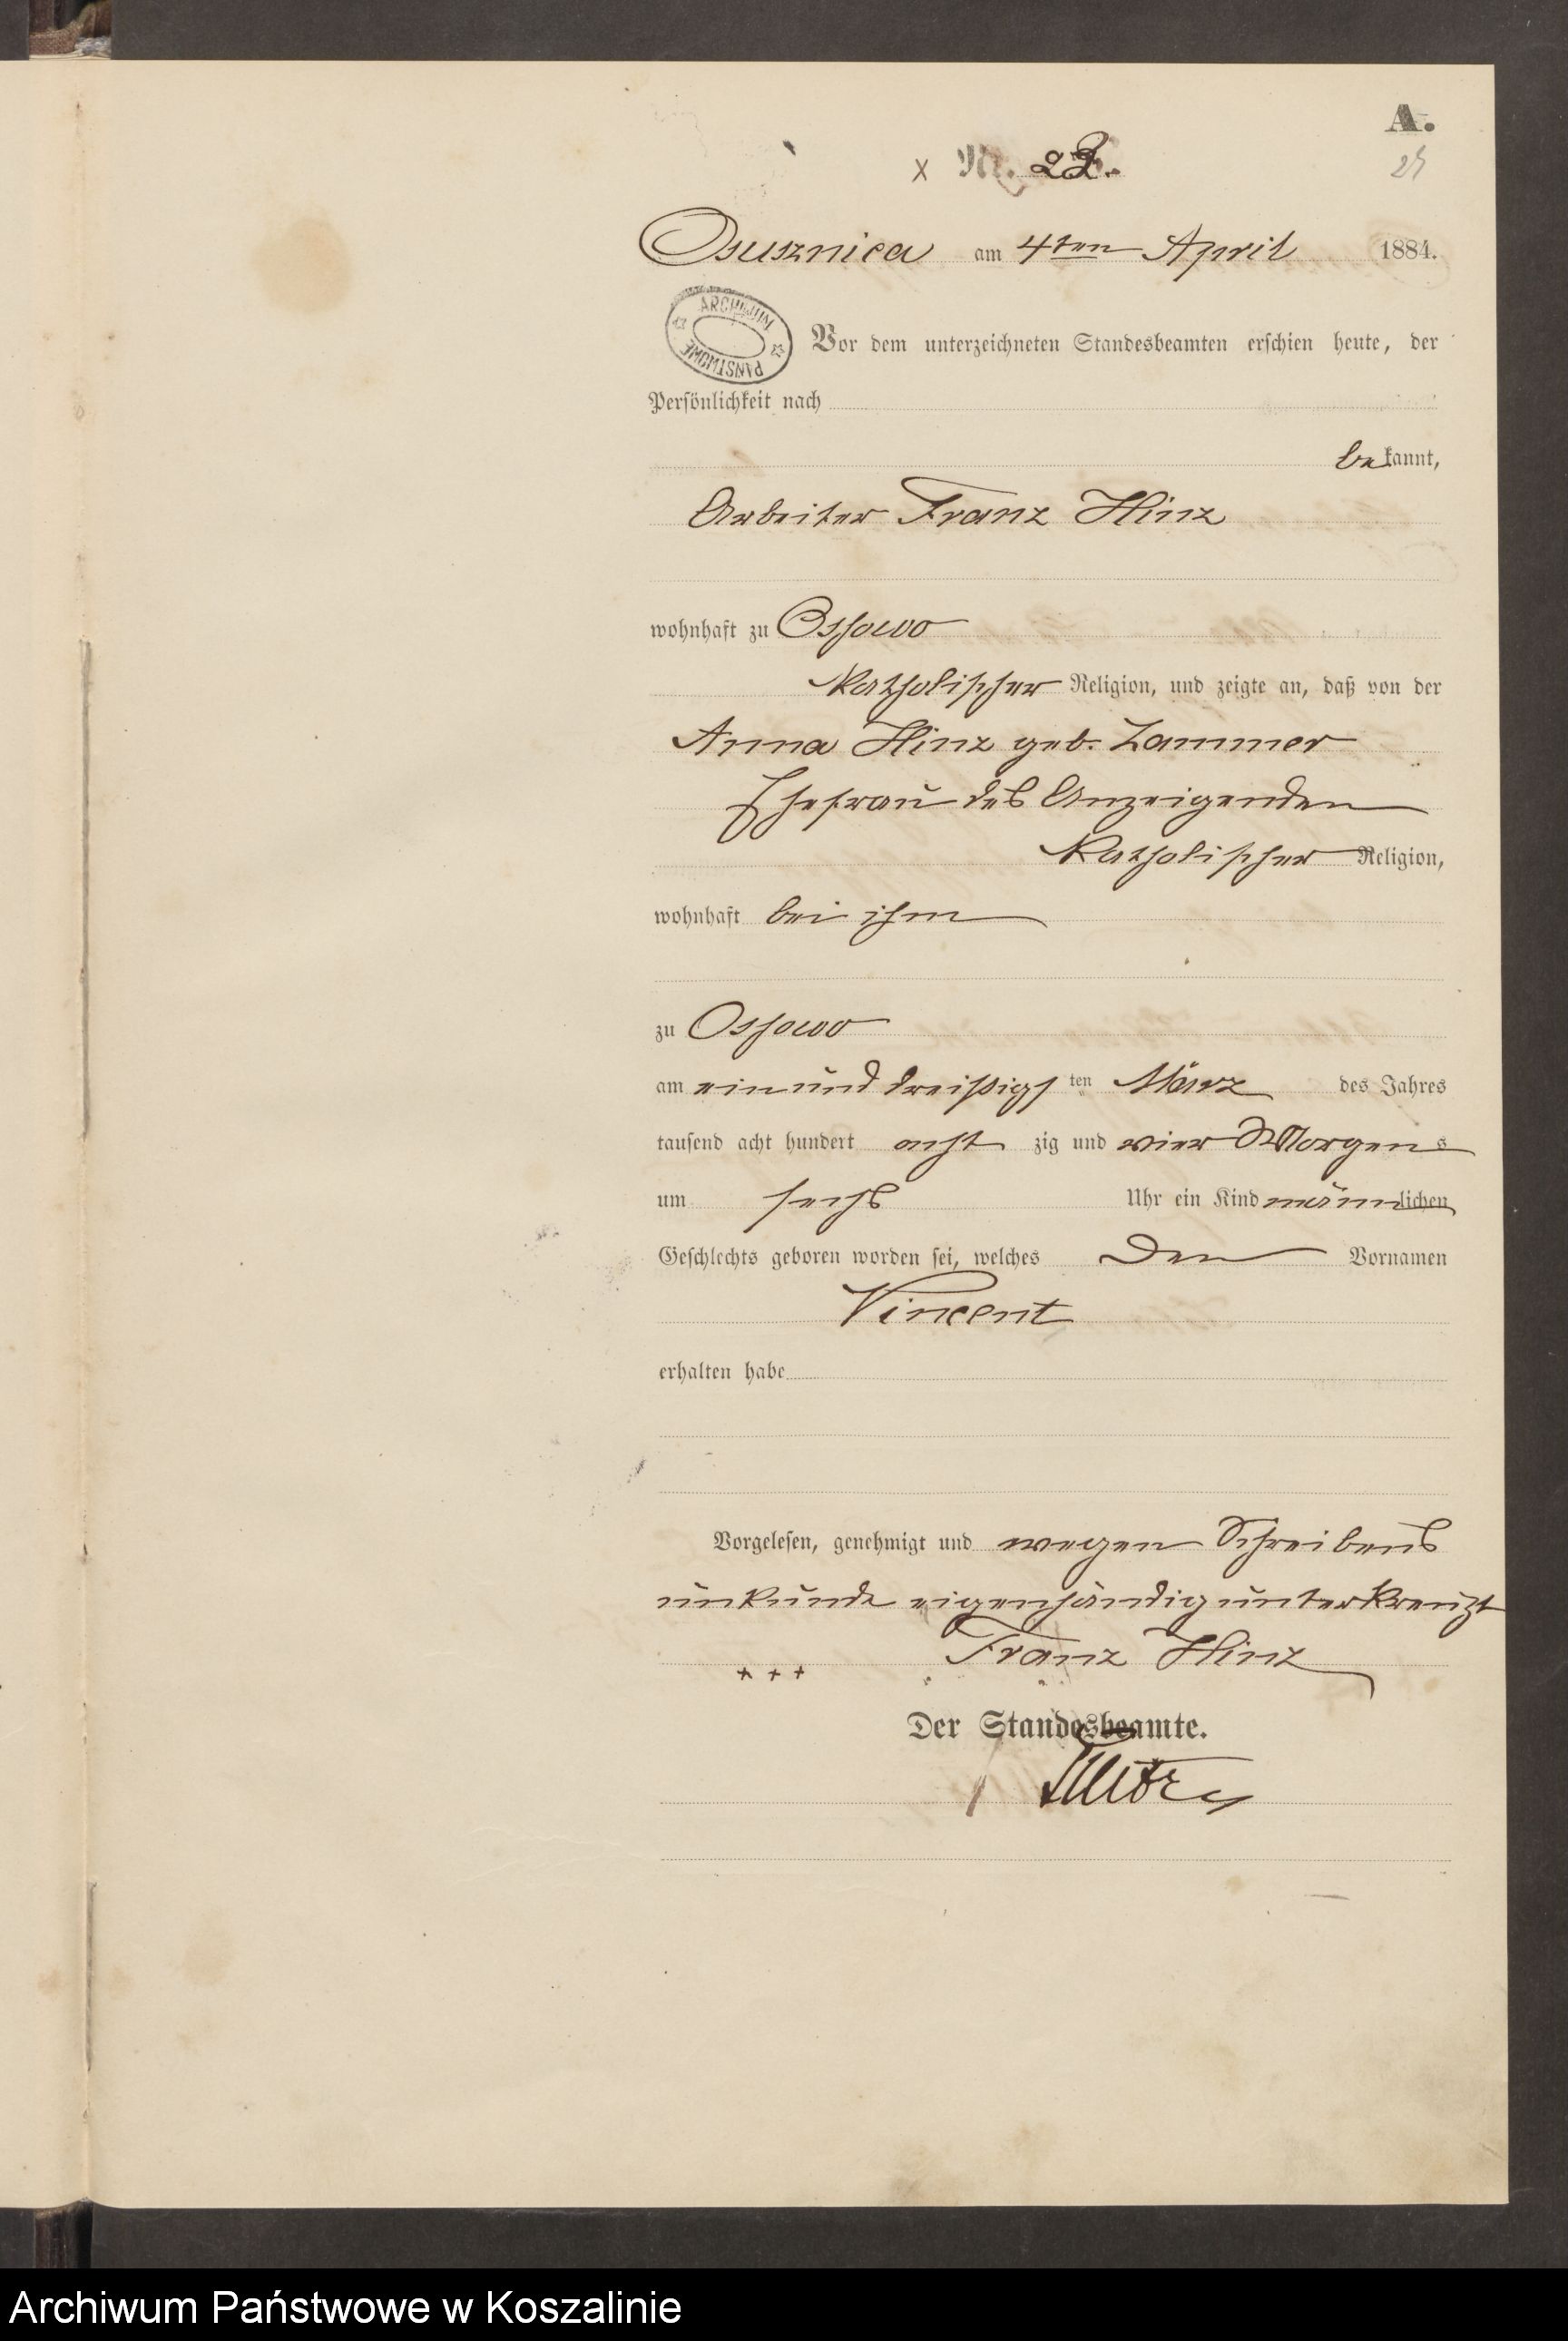 A.
x Nr. 22.
25
Osusznica am 4ten April 1884.
ARCHIWUM PAŃSTWOWE
Vor dem unterzeichneten Standesbeamten erschien heute, der
Persönlichkeit nach
bekannt,
Arbeiter Franz Hinz
wohnhaft zu Ossowo
katholischer Religion, und zeigte an, daß von der
Anna Hinz geb. Zammer
Ehefrau des Anzeigenden
katholischer Religion,
wohnhaft bei ihm
zu Ossowo
am einunddreißigsten März des Jahres
tausend acht hundert achtzig und vier Morgens
um sechs Uhr ein Kind männlichen
Geschlechts geboren worden sei, welches den Vornamen
Vincent
erhalten habe
Vorgelesen, genehmigt und wegen Schreibens
unkunde eigenhändig unterkreuzt
+ + + Franz Hinz
Der Standesbeamte.
Archiwum Państwowe w Koszalinie